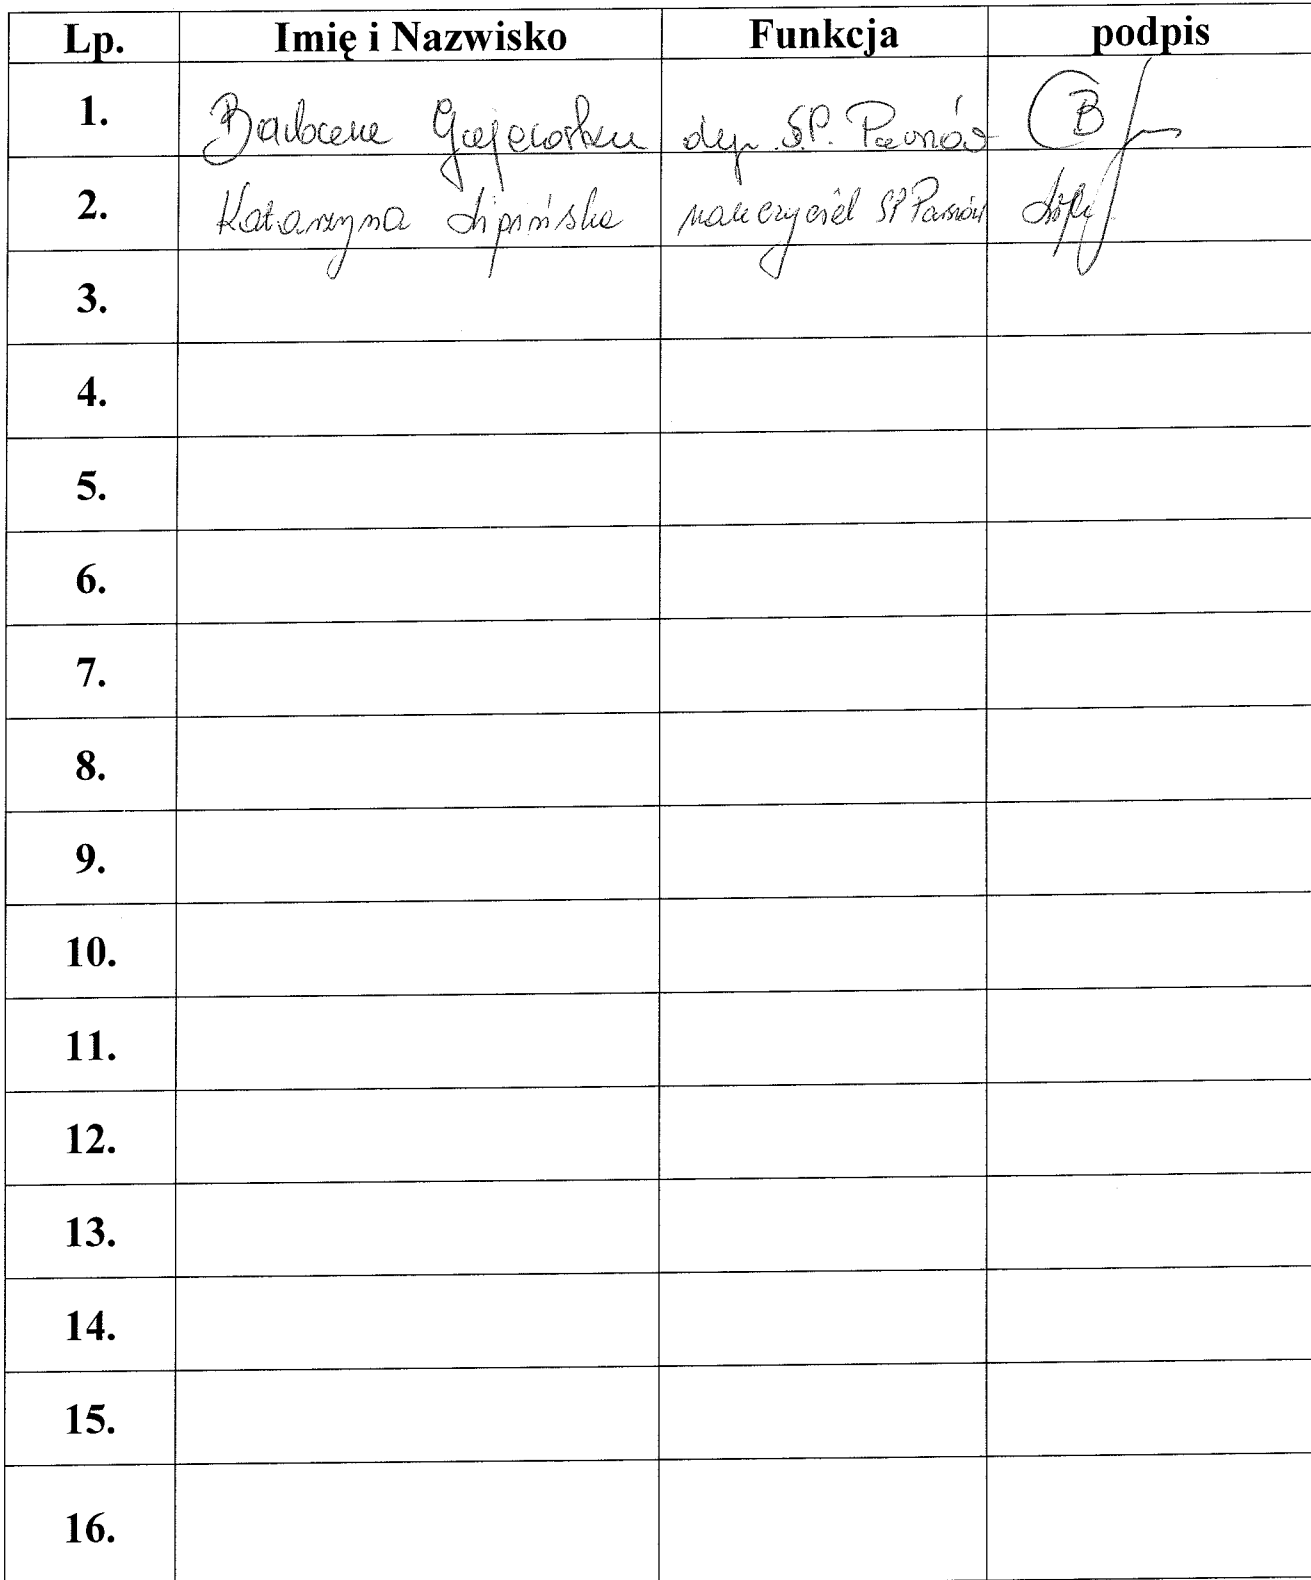 Lp. Imię i Nazwisko Funkcja podpis
1. Barbara dyr. S.P. Parnów
2. Katarzyna Lipińska nauczyciel SP Parnów
3.
4.
5.
6.
7.
8.
9.
10.
11.
12.
13.
14.
15.
16.